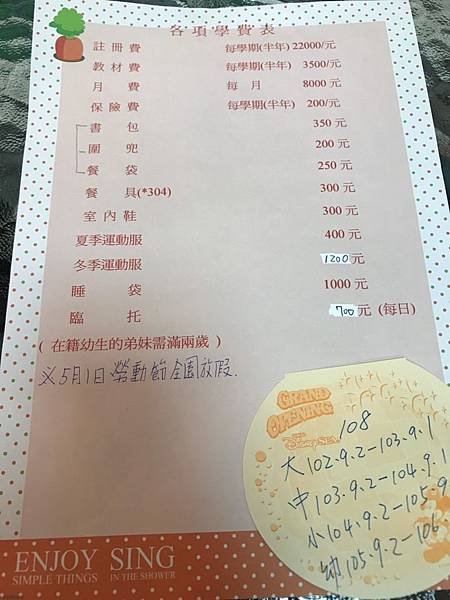 各項學費表
註冊費 每學期(半年) 22000/元
教材費 每學期(半年) 3500/元
月費 每月 8000元
保險費 每學期(半年) 200/元
書包 350元
圍兜 200元
餐袋 250元
餐具(*304) 300元
室內鞋 300元
夏季運動服 400元
冬季運動服 1200元
睡袋 1000元
臨托 700元 (每日)
( 在籍幼生的弟妹需滿兩歲 )
※5月1日勞動節全園放假.
GRAND
OPENING
Disney SEA
108
大102.9.2-103.9.1
中103.9.2-104.9.1
小104.9.2-105.9
幼105.9.2-106
ENJOY SING
SIMPLE THINGS IN THE SHOWER